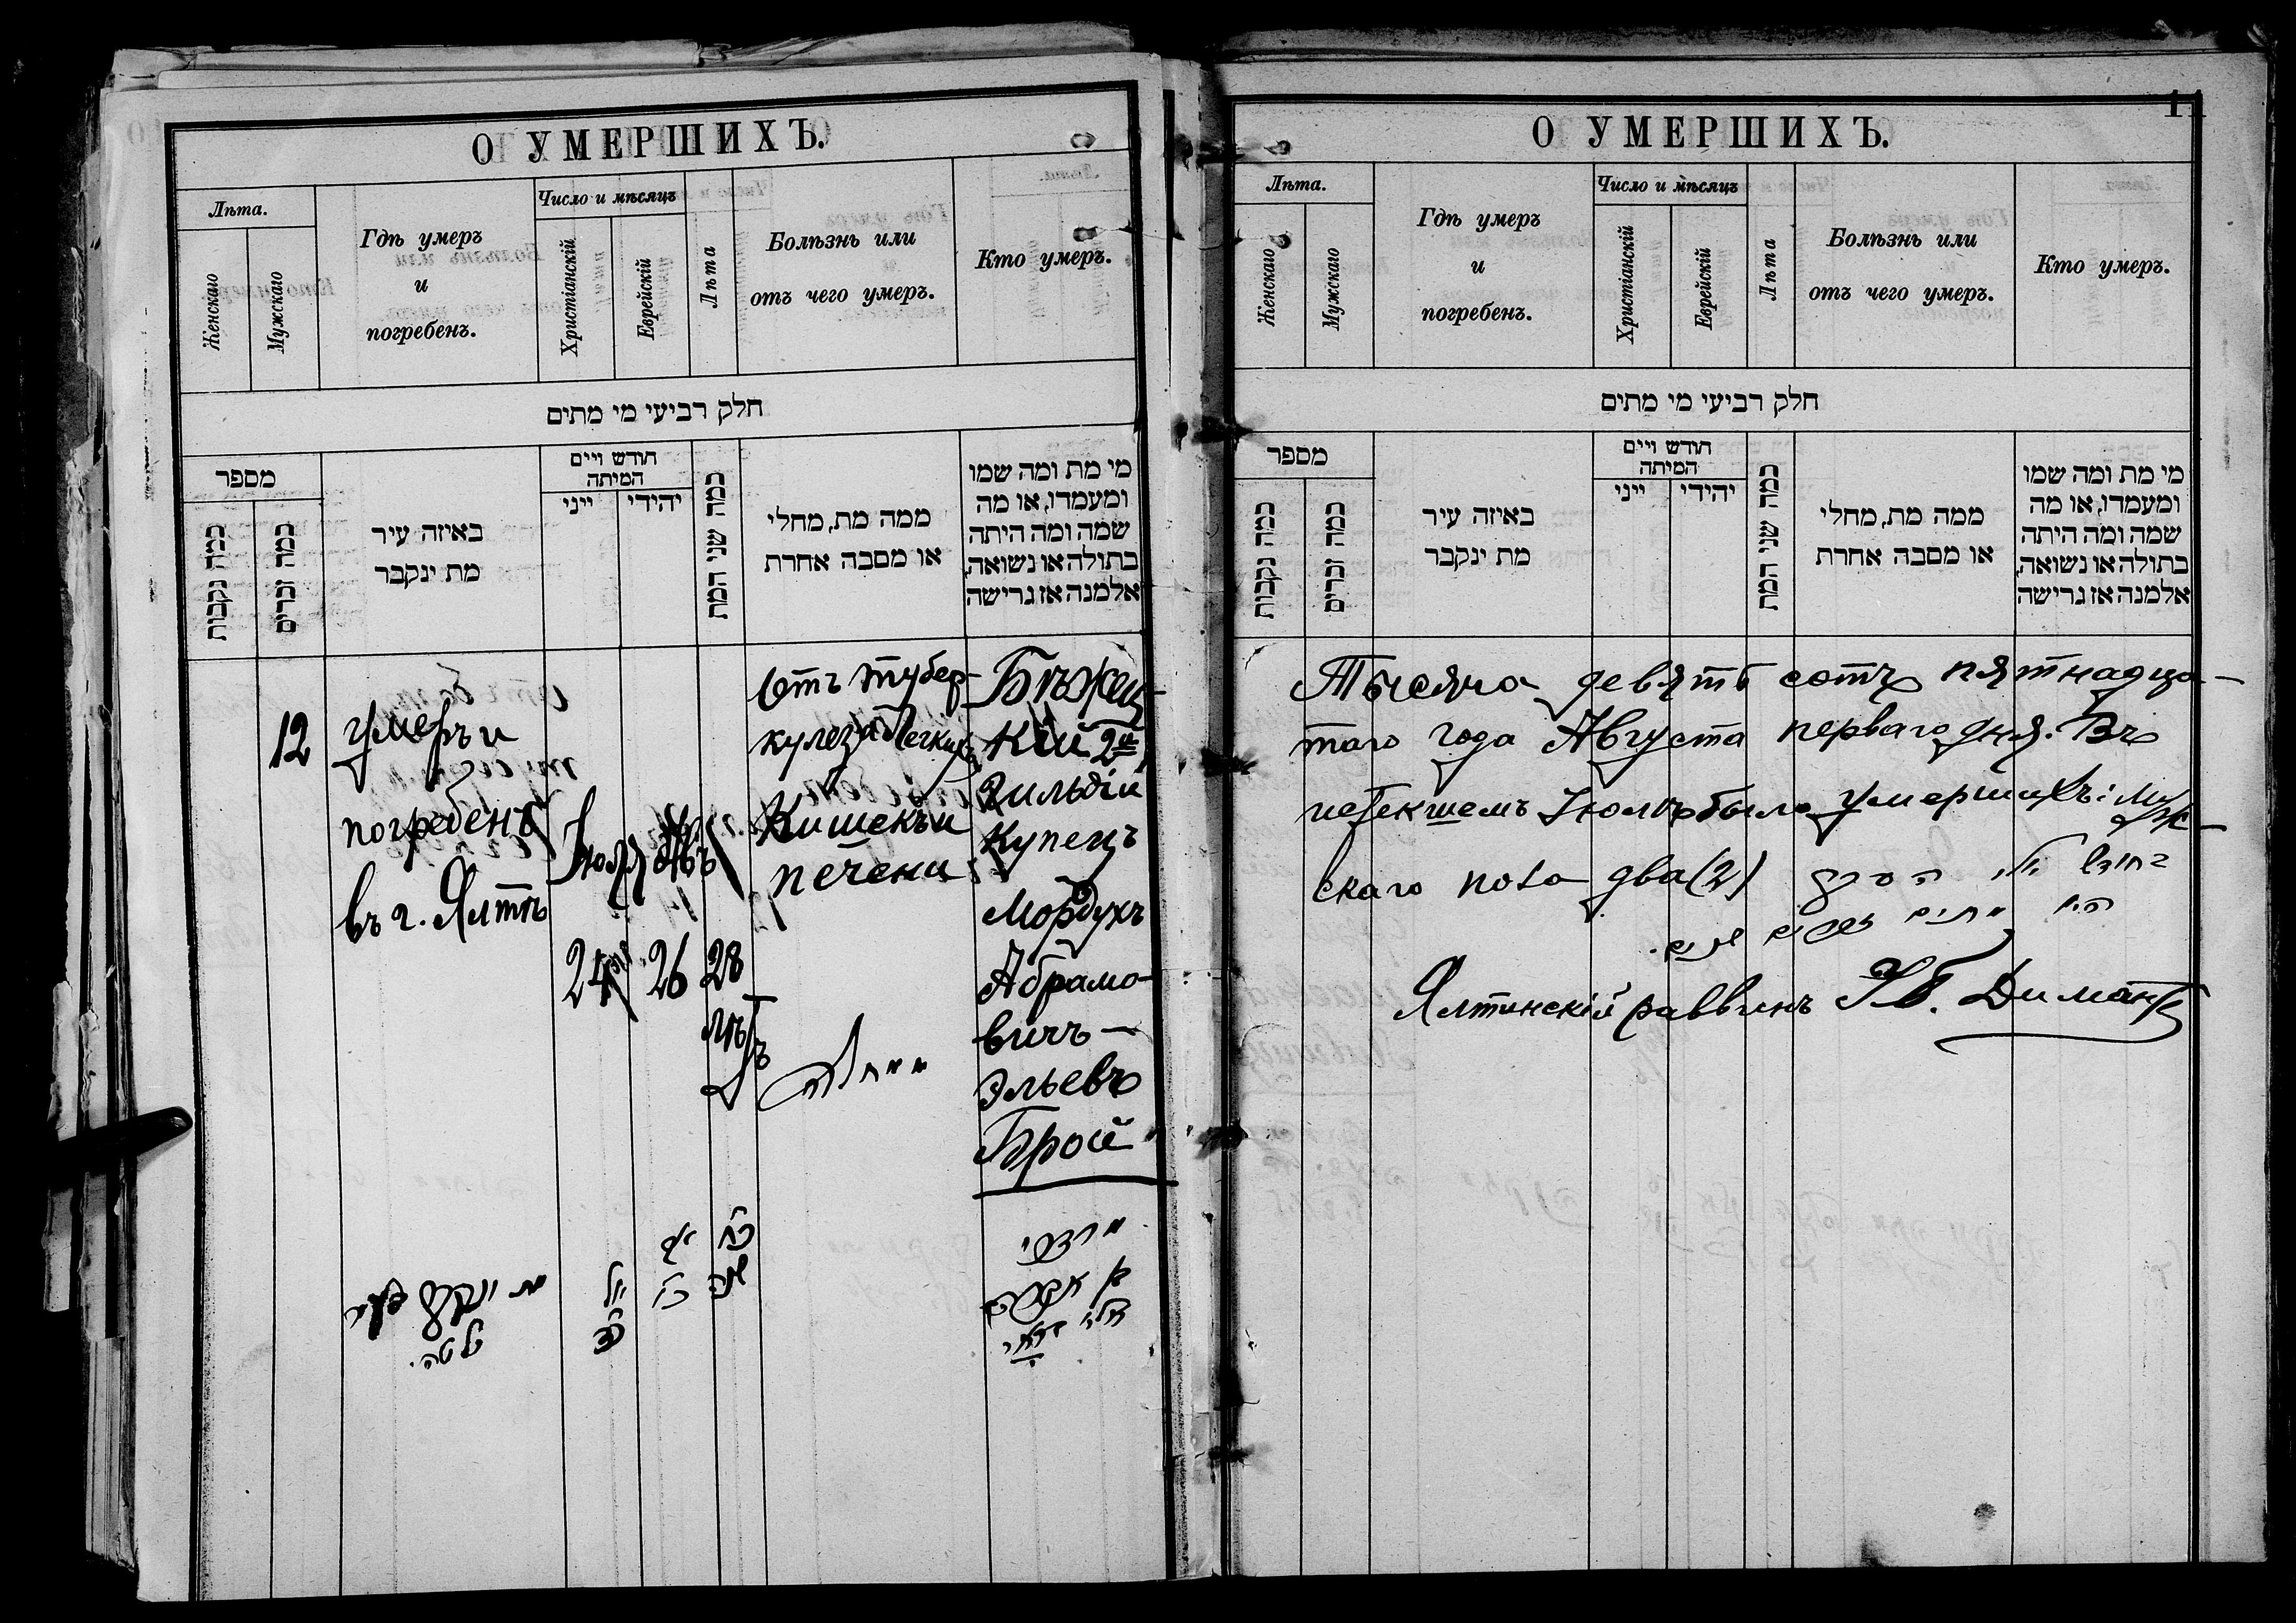 О УМЕРШИХЪ.
Лѣта.
Женскаго
Мужскаго
Гдѣ умеръ
и
погребенъ.
Число и мѣсяцъ
Христіанскій
Еврейскій
Лѣта
Болѣзнь или
отъ чего умеръ.
Кто умеръ.
חלק רביעי מי מתים
מספר
כמה נקבות
כמה זכרים
באיזה עיר
מת ינקבר
חודש ויים
המיתה
ייני
יהידי
כמה שני המת
ממה מת, מחלי
או מסבה אחרת
מי מת ומה שמו
ומעמדו, או מה
שמה ומה היתה
בתולה או נשואה,
אלמנה אז גרישה
12
умеръ и
погребенъ
въ г. Ялтѣ
Іюля
24
Авъ
26
28
лѣтъ
Отъ тубер-
кулеза легкихъ
Кишекъ и
печени
Бѣжец-
кій 2й
Гильдіи
Купецъ
Мордухъ
Абрамо-
вичъ —
Эльевъ
Брой
מת ונקבר בעיר
ילטה.
יול
כד
אב
כו
כח
שנה
מרדכי
בן אברהם
11
О УМЕРШИХЪ.
Лѣта.
Женскаго
Мужскаго
Гдѣ умеръ
и
погребенъ.
Число и мѣсяцъ
Христіанскій
Еврейскій
Лѣта
Болѣзнь или
отъ чего умеръ.
Кто умеръ.
חלק רביעי מי מתים
מספר
כמה נקבות
כמה זכרים
באיזה עיר
מת ינקבר
חודש ויים
המיתה
ייני
יהידי
כמה שני המת
ממה מת, מחלי
או מסבה אחרת
מי מת ומה שמו
ומעמדו, או מה
שמה ומה היתה
בתולה או נשואה,
אלמנה אז גרישה
Тысяча девять сотъ пятнадца-
таго года Августа перваго дня. Въ
истекшемъ Іюлѣ было умершихъ: муж-
скаго пола два (2)
בחודש יולי העבר
היו מתים זכרים שנים.
Ялтинскій раввинъ Димантъ